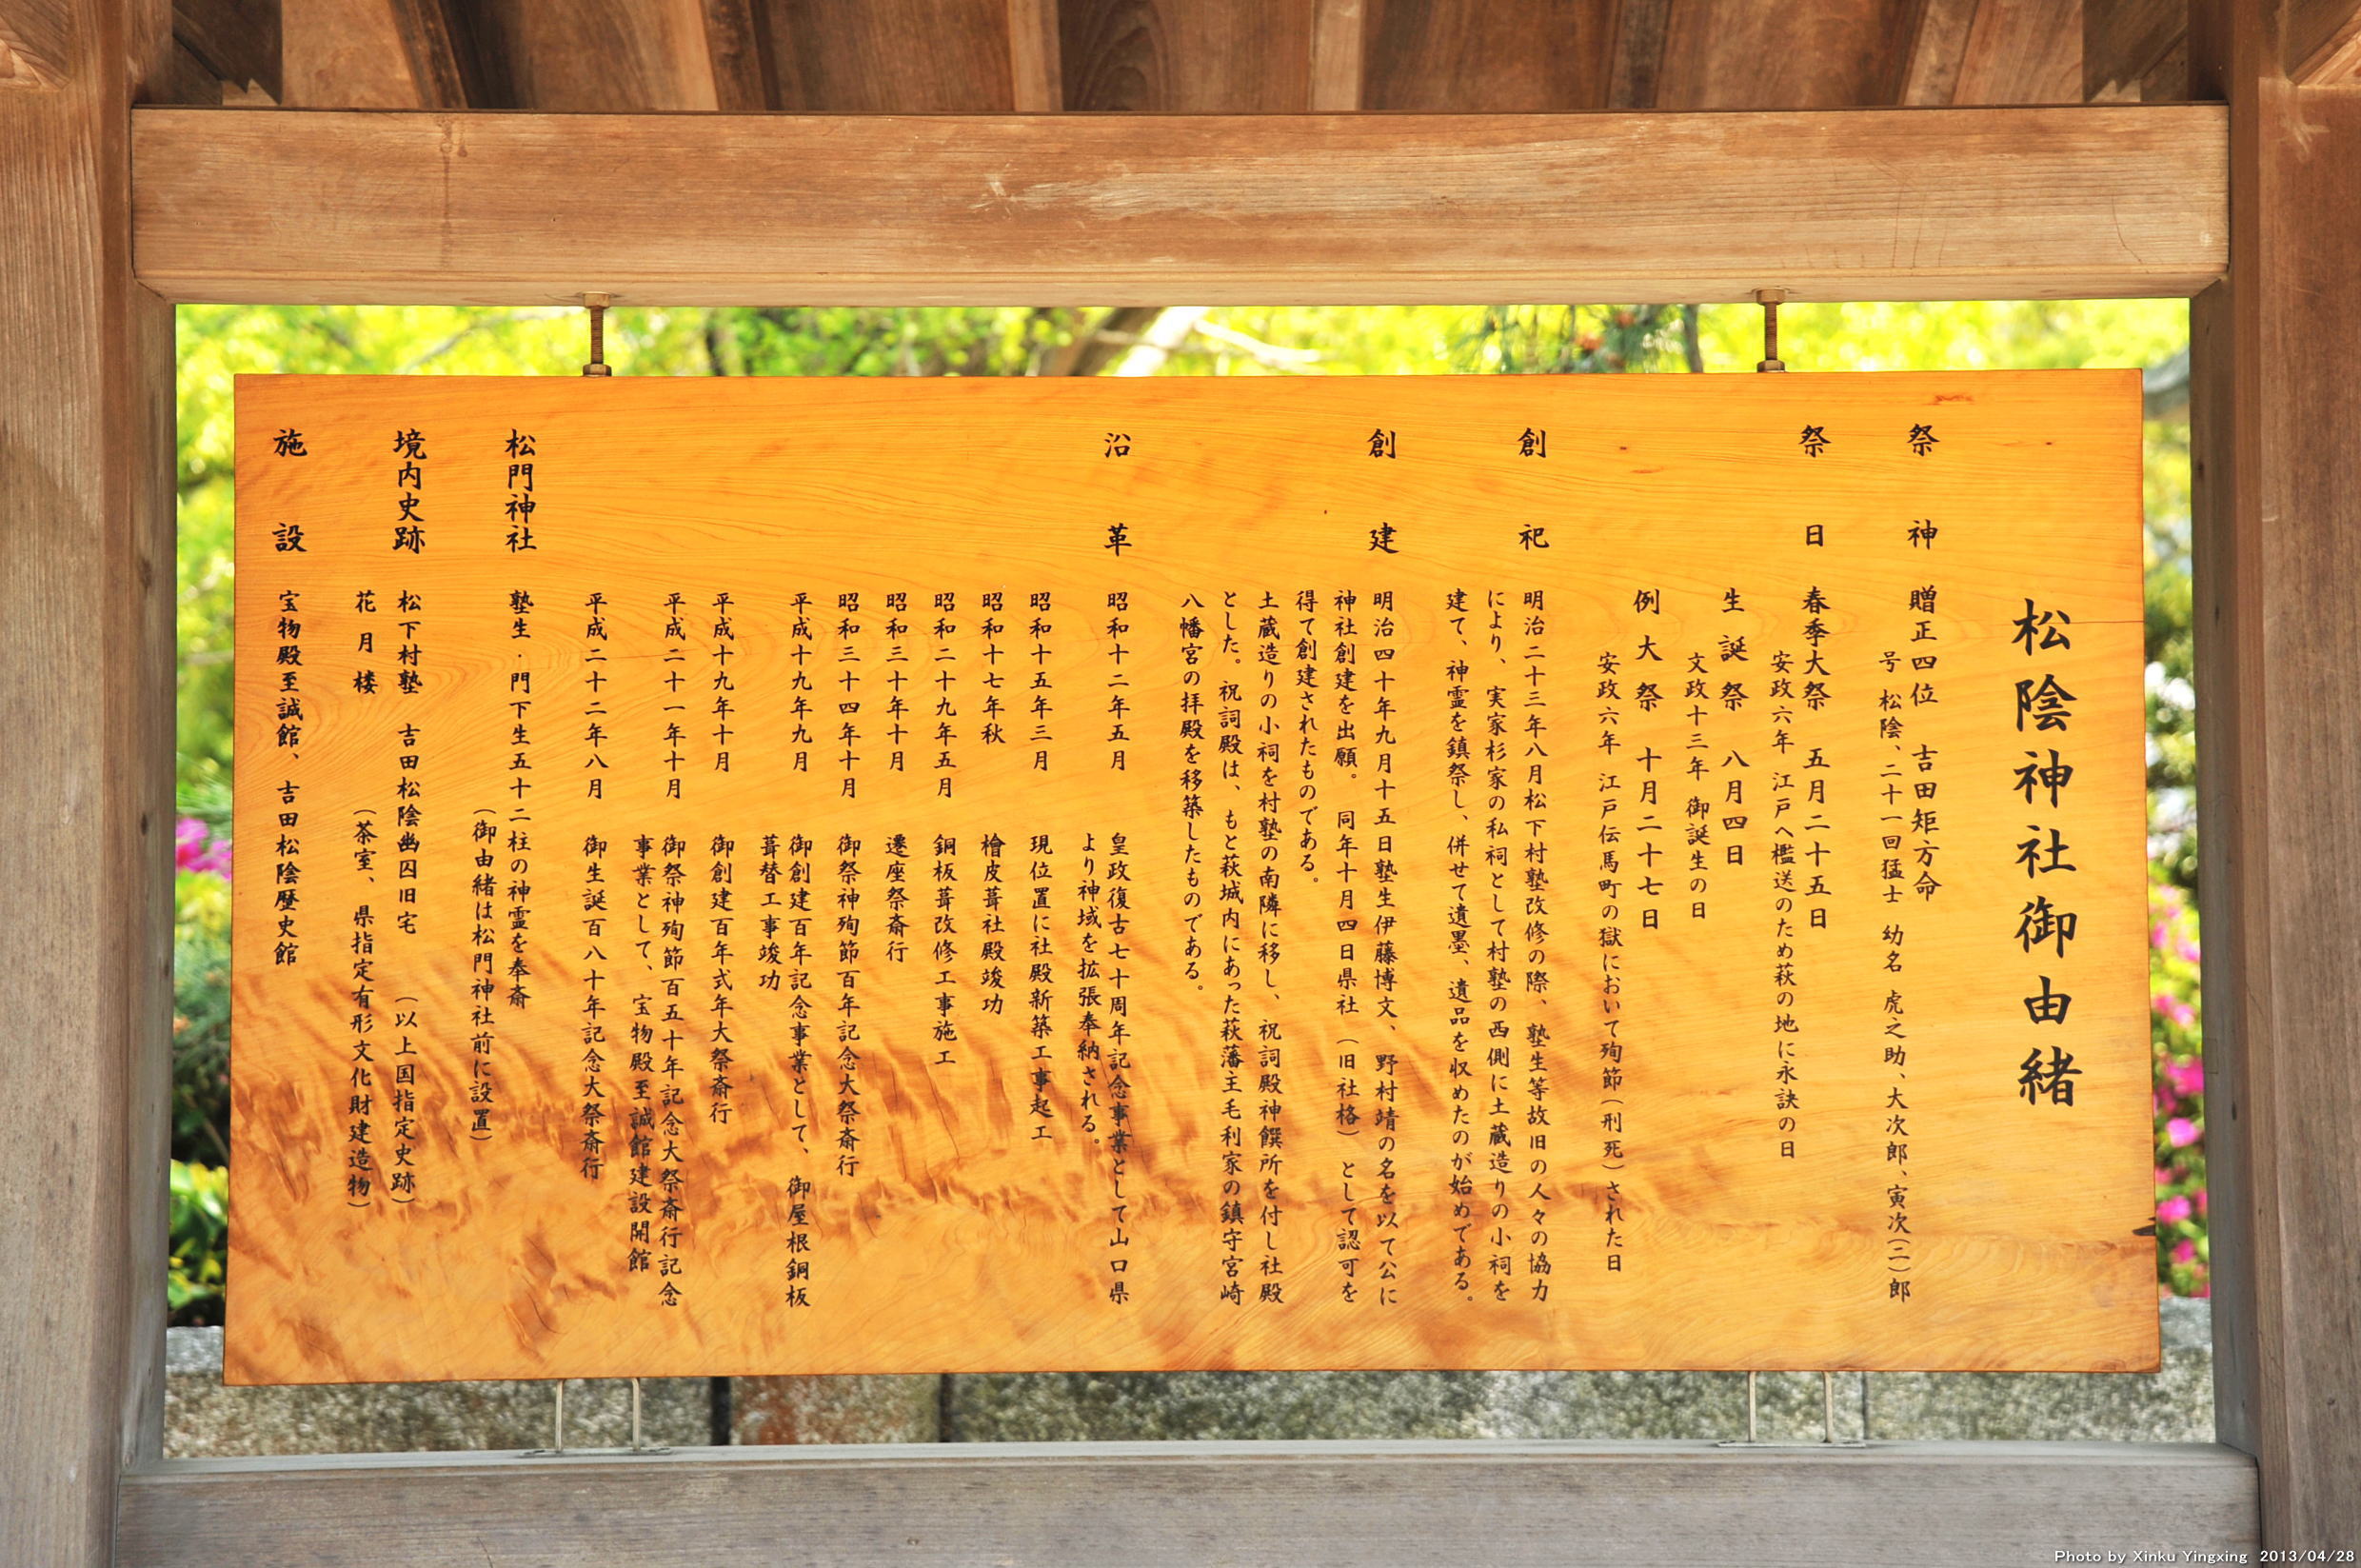 松陰神社御由緒
祭神 贈正四位 吉田矩方命
号 松陰、二十一回猛士 幼名 虎之助、大次郎、寅次(二)郎
祭日 春季大祭 五月二十五日
安政六年 江戸へ檻送のため萩の地に永訣の日
生誕祭 八月四日
文政十三年 御誕生の日
例大祭 十月二十七日
安政六年 江戸伝馬町の獄において殉節(刑死)された日
創祀 明治二十三年八月松下村塾改修の際、塾生等故旧の人々の協力
により、実家杉家の私祠として村塾の西側に土蔵造りの小祠を
建て、神霊を鎮祭し、併せて遺墨、遺品を収めたのが始めである。
創建 明治四十年九月十五日塾生伊藤博文、野村靖の名を以て公に
神社創建を出願。同年十月四日県社(旧社格)として認可を
得て創建されたものである。
土蔵造りの小祠を村塾の南隣に移し、祝詞殿神饌所を付し社殿
とした。祝詞殿は、もと萩城内にあった萩藩主毛利家の鎮守宮崎
八幡宮の拝殿を移築したものである。
沿革 昭和十二年五月 皇政復古七十周年記念事業として山口県
より神域を拡張奉納される。
昭和十五年三月 現位置に社殿新築工事起工
昭和十七年秋 檜皮葺社殿竣功
昭和二十九年五月 銅板葺改修工事施工
昭和三十年十月 遷座祭斎行
昭和三十四年十月 御祭神殉節百年記念大祭斎行
平成十九年九月 御創建百年記念事業として、御屋根銅板
葺替工事竣功
平成十九年十月 御創建百年式年大祭斎行
平成二十一年十月 御祭神殉節百五十年記念大祭斎行記念
事業として、宝物殿至誠館建設開館
平成二十二年八月 御生誕百八十年記念大祭斎行
松門神社 塾生・門下生五十二柱の神霊を奉斎
(御由緒は松門神社前に設置)
境内史跡 松下村塾 吉田松陰幽囚旧宅 (以上国指定史跡)
花月楼 (茶室、県指定有形文化財建造物)
施設 宝物殿至誠館、吉田松陰歴史館
Photo by Xinku Yingxing 2013/04/28